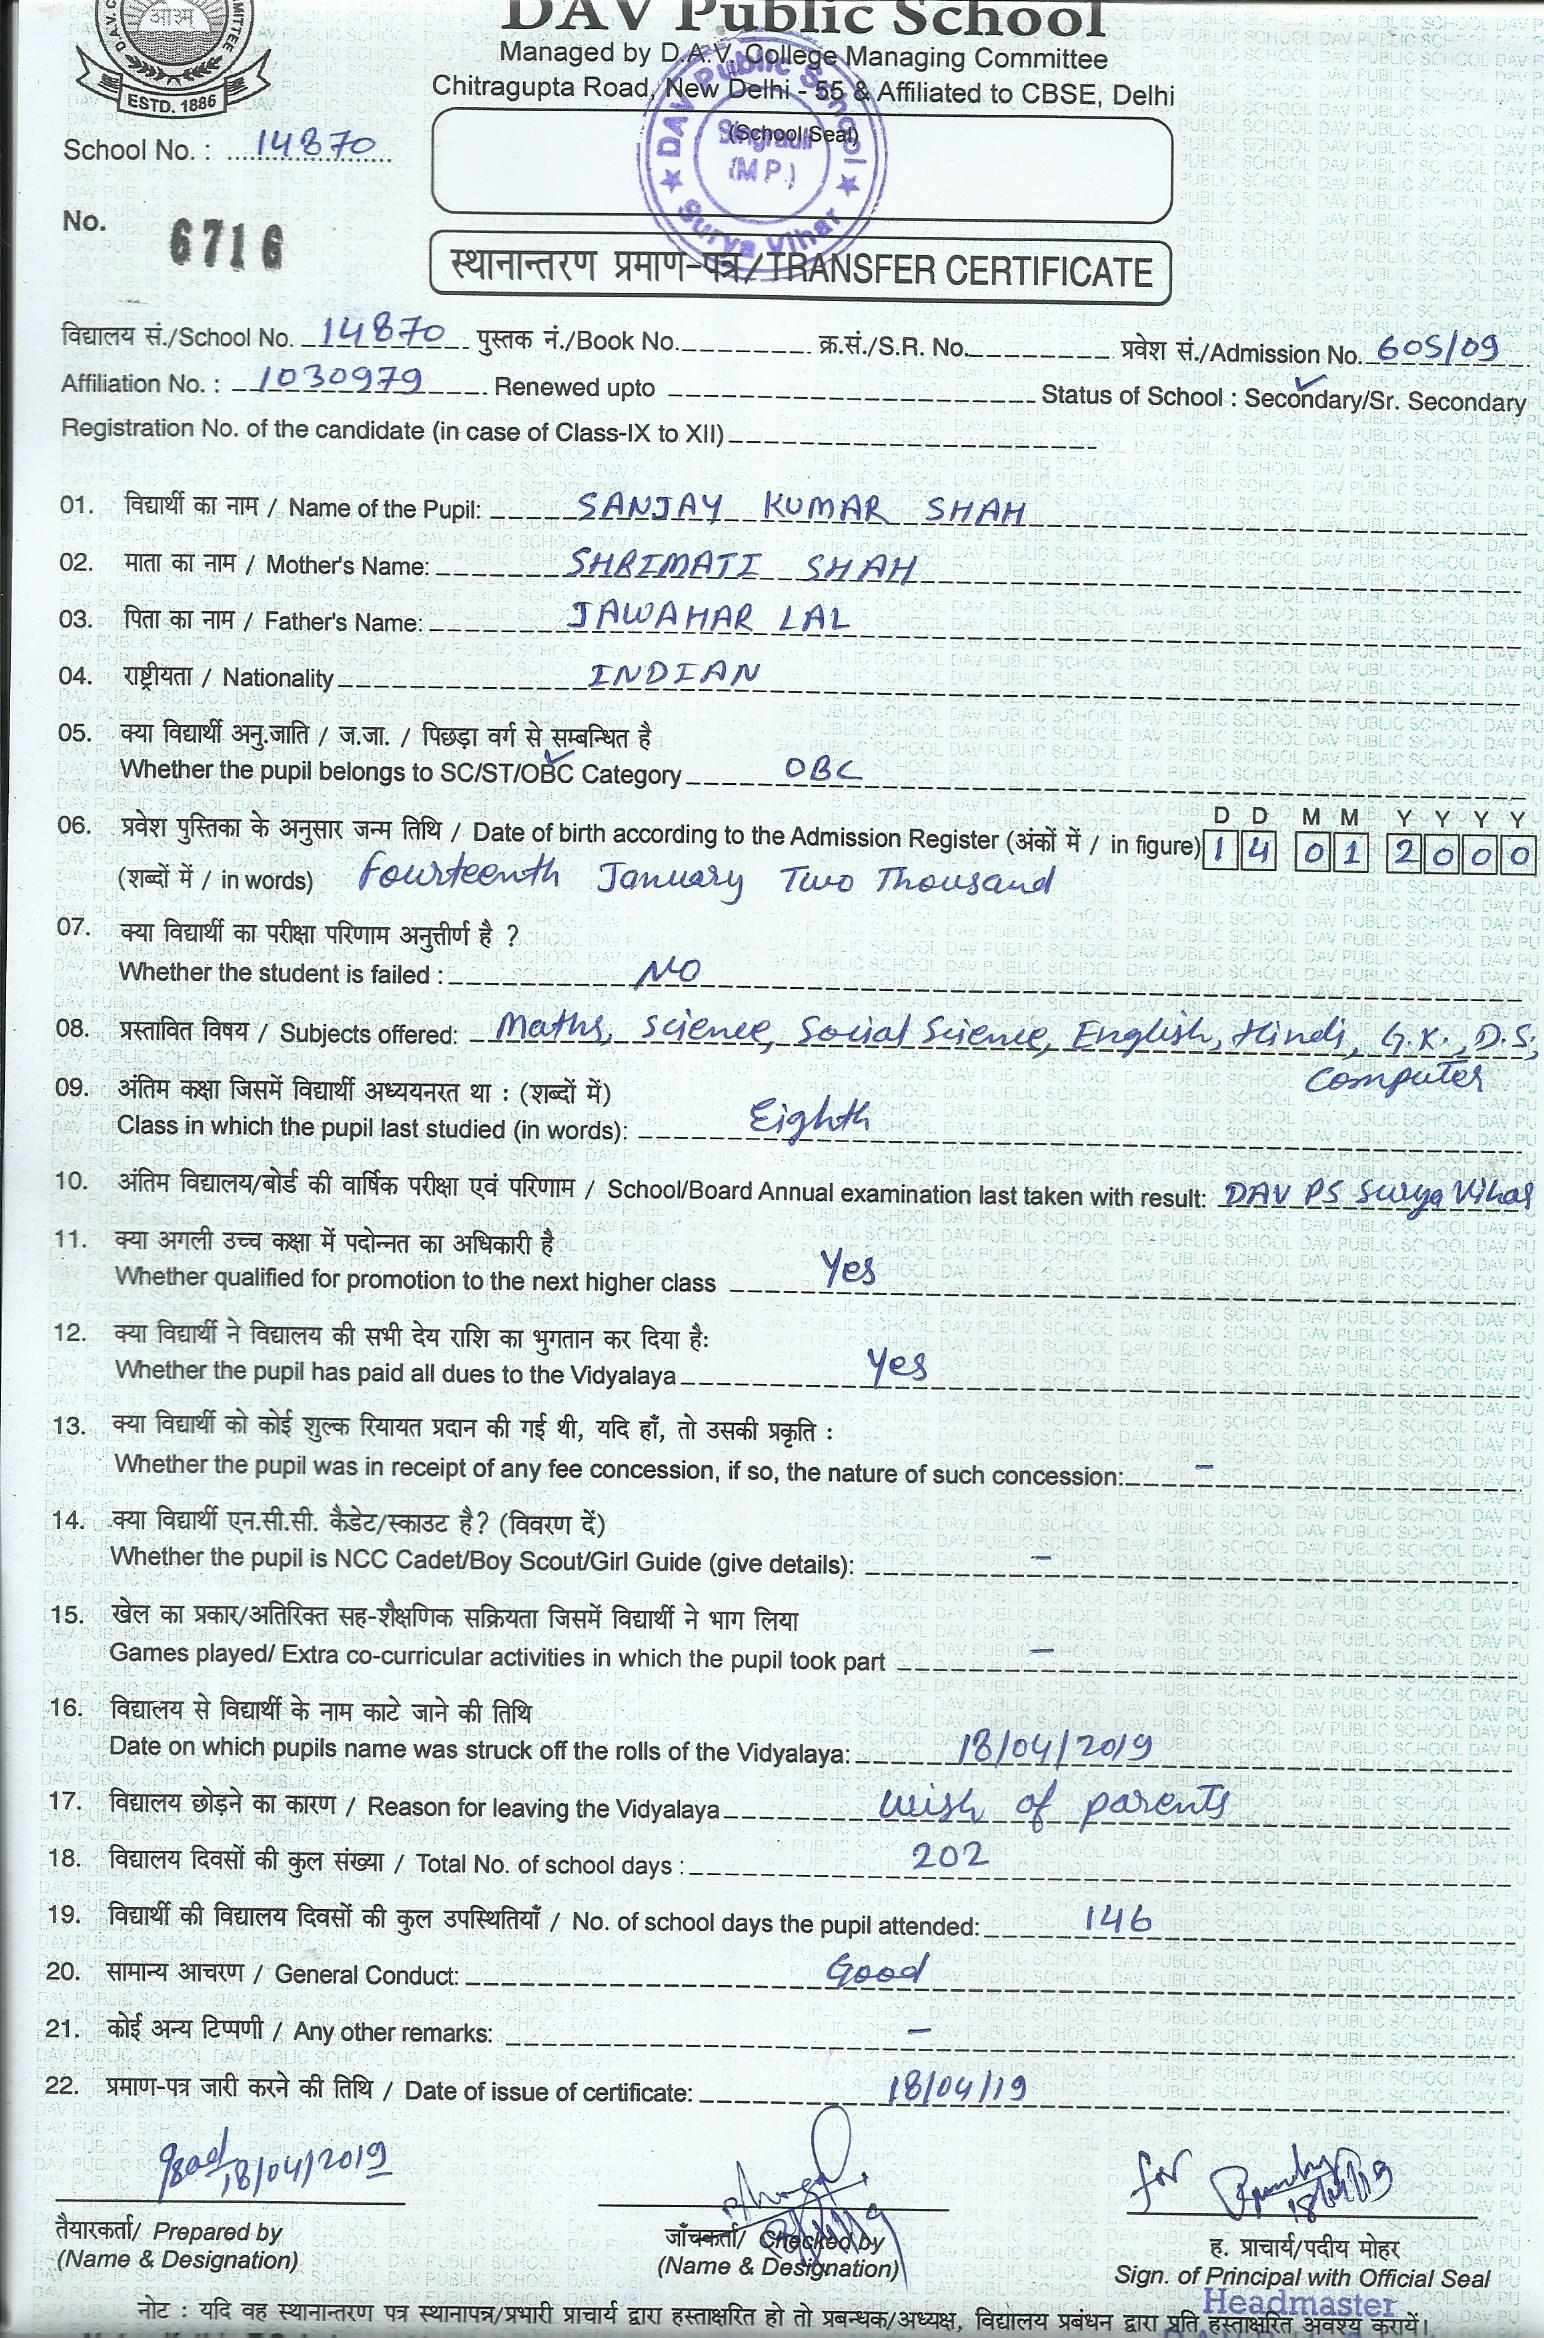 DAV Public School
Managed by D.A.V. College Managing Committee
Chitragupta Road, New Delhi - 55 & Affiliated to CBSE, Delhi
ESTD. 1886
(School Seal)
DAV Public School
Singrauli
(M P.)
Surya Vihar
School No. : 14870
No. 6716
स्थानान्तरण प्रमाण-पत्र/TRANSFER CERTIFICATE
विद्यालय सं./School No. 14870 पुस्तक नं./Book No. क्र.सं./S.R. No. प्रवेश सं./Admission No. 605/09
Affiliation No. : 1030979 Renewed upto Status of School : Secondary/Sr. Secondary
Registration No. of the candidate (in case of Class-IX to XII)
01. विद्यार्थी का नाम / Name of the Pupil: SANJAY KUMAR SHAH
02. माता का नाम / Mother's Name: SHRIMATI SHAH
03. पिता का नाम / Father's Name: JAWAHAR LAL
04. राष्ट्रीयता / Nationality INDIAN
05. क्या विद्यार्थी अनु.जाति / ज.जा. / पिछड़ा वर्ग से सम्बन्धित है
Whether the pupil belongs to SC/ST/OBC Category OBC
D D M M Y Y Y Y
06. प्रवेश पुस्तिका के अनुसार जन्म तिथि / Date of birth according to the Admission Register (अंकों में / in figure) 1 4 0 1 2 0 0 0
(शब्दों में / in words) Fourteenth January Two Thousand
07. क्या विद्यार्थी का परीक्षा परिणाम अनुत्तीर्ण है ?
Whether the student is failed : NO
08. प्रस्तावित विषय / Subjects offered: Maths, Science, Social Science, English, Hindi, G.K., D.S,
Computer
09. अंतिम कक्षा जिसमें विद्यार्थी अध्ययनरत था : (शब्दों में)
Class in which the pupil last studied (in words): Eighth
10. अंतिम विद्यालय/बोर्ड की वार्षिक परीक्षा एवं परिणाम / School/Board Annual examination last taken with result: DAV PS Surya Vihar
11. क्या अगली उच्च कक्षा में पदोन्नत का अधिकारी है
Whether qualified for promotion to the next higher class Yes
12. क्या विद्यार्थी ने विद्यालय की सभी देय राशि का भुगतान कर दिया है:
Whether the pupil has paid all dues to the Vidyalaya Yes
13. क्या विद्यार्थी को कोई शुल्क रियायत प्रदान की गई थी, यदि हाँ, तो उसकी प्रकृति :
Whether the pupil was in receipt of any fee concession, if so, the nature of such concession: -
14. क्या विद्यार्थी एन.सी.सी. कैडेट/स्काउट है? (विवरण दें)
Whether the pupil is NCC Cadet/Boy Scout/Girl Guide (give details): -
15. खेल का प्रकार/अतिरिक्त सह-शैक्षणिक सक्रियता जिसमें विद्यार्थी ने भाग लिया
Games played/ Extra co-curricular activities in which the pupil took part -
16. विद्यालय से विद्यार्थी के नाम काटे जाने की तिथि
Date on which pupils name was struck off the rolls of the Vidyalaya: 18/04/2019
17. विद्यालय छोड़ने का कारण / Reason for leaving the Vidyalaya wish of parents
18. विद्यालय दिवसों की कुल संख्या / Total No. of school days : 202
19. विद्यार्थी की विद्यालय दिवसों की कुल उपस्थितियाँ / No. of school days the pupil attended: 146
20. सामान्य आचरण / General Conduct: Good
21. कोई अन्य टिप्पणी / Any other remarks: -
22. प्रमाण-पत्र जारी करने की तिथि / Date of issue of certificate: 18/04/19
18/04/2019 for
तैयारकर्ता/ Prepared by जाँचकर्ता/ Checked by ह. प्राचार्य/पदीय मोहर
(Name & Designation) (Name & Designation) Sign. of Principal with Official Seal
Headmaster
नोट : यदि वह स्थानान्तरण पत्र स्थानापन्न/प्रभारी प्राचार्य द्वारा हस्ताक्षरित हो तो प्रबन्धक/अध्यक्ष, विद्यालय प्रबंधन द्वारा प्रति हस्ताक्षरित अवश्य करायें।